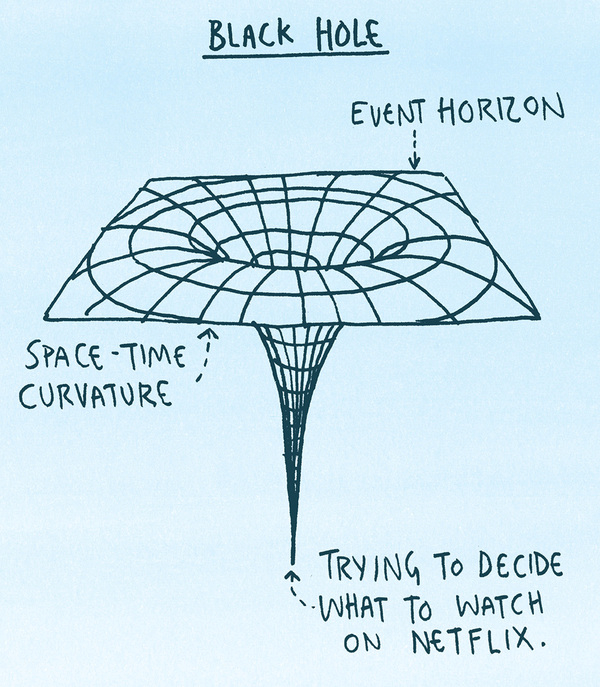 BLACK HOLE
EVENT HORIZON
SPACE-TIME
CURVATURE
TRYING TO DECIDE
WHAT TO WATCH
ON NETFLIX.